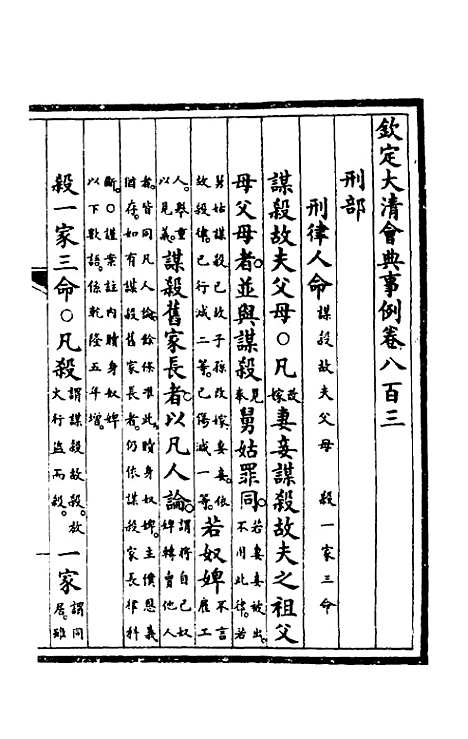 欽定大清會典事例卷八百三
刑部
刑律人命 謀殺故夫父母 殺一家三命
謀殺故夫父母○凡改嫁妻妾謀殺故夫之祖父
母父母者。並與謀殺見奉舅姑罪同。若妻妾被出。不用此律。若
舅姑謀殺已故子孫改嫁妻妾。依故殺律。已行減二等。已傷減一等。若奴婢不言雇工
人。舉重以見義。謀殺舊家長者。以凡人論。謂將自己奴婢轉賣他人
者。皆同凡人論。餘條準此。贖身奴婢。主僕恩義猶存。如有謀殺舊家長者。仍依謀殺家長律科
斷。○謹案註內贖身奴婢以下數語。係乾隆五年增。
殺一家三命○凡殺謂謀殺。故殺。放火行盜而殺。一家謂同居。雖